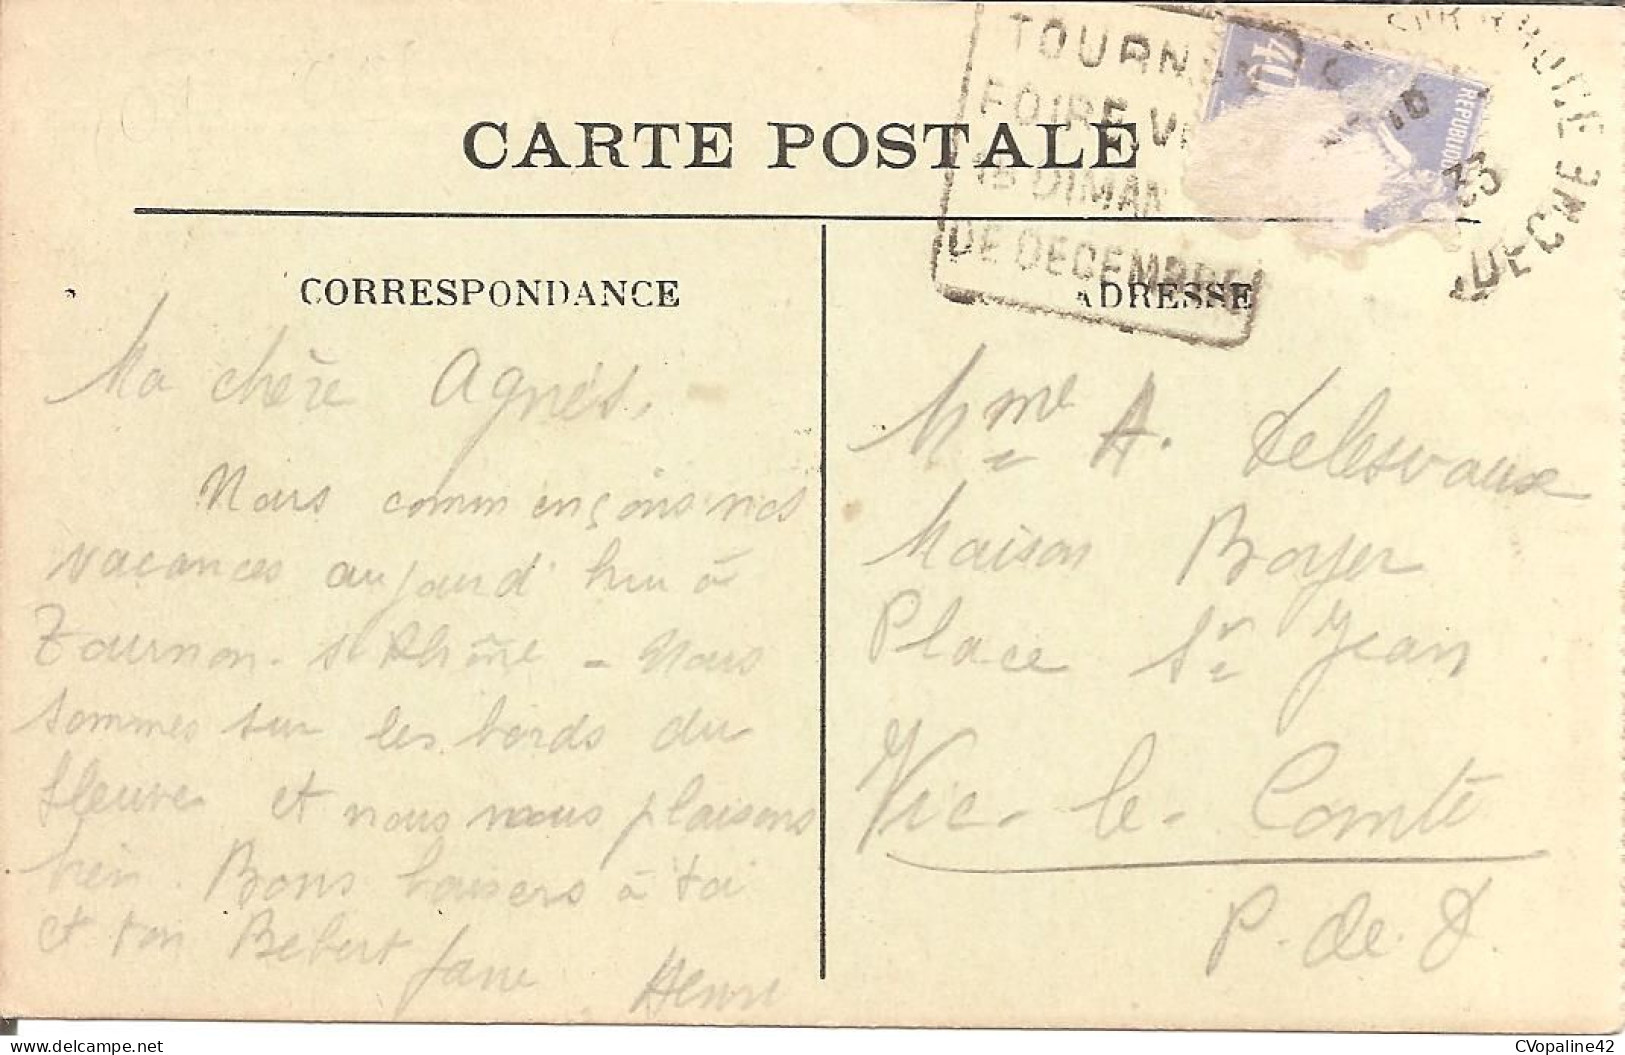 TOURN
FOIRE
DIMAN
DE DECEMBRE
40
REPUBLIQUE
CARTE POSTALE
CORRESPONDANCE
ADRESSE
Ma chère Agnès,
Nous commençons nos
vacances aujourd'hui à
Tournon-s/Rhône - Nous
sommes sur les bords du
fleuve et nous nous plaisons
bien. Bons baisers à toi
et ton Bebert
Mme A. Delesvaux
Maison Boyer
Place St Jean
Vic-le-Comte
P. de D.
CVopaline42